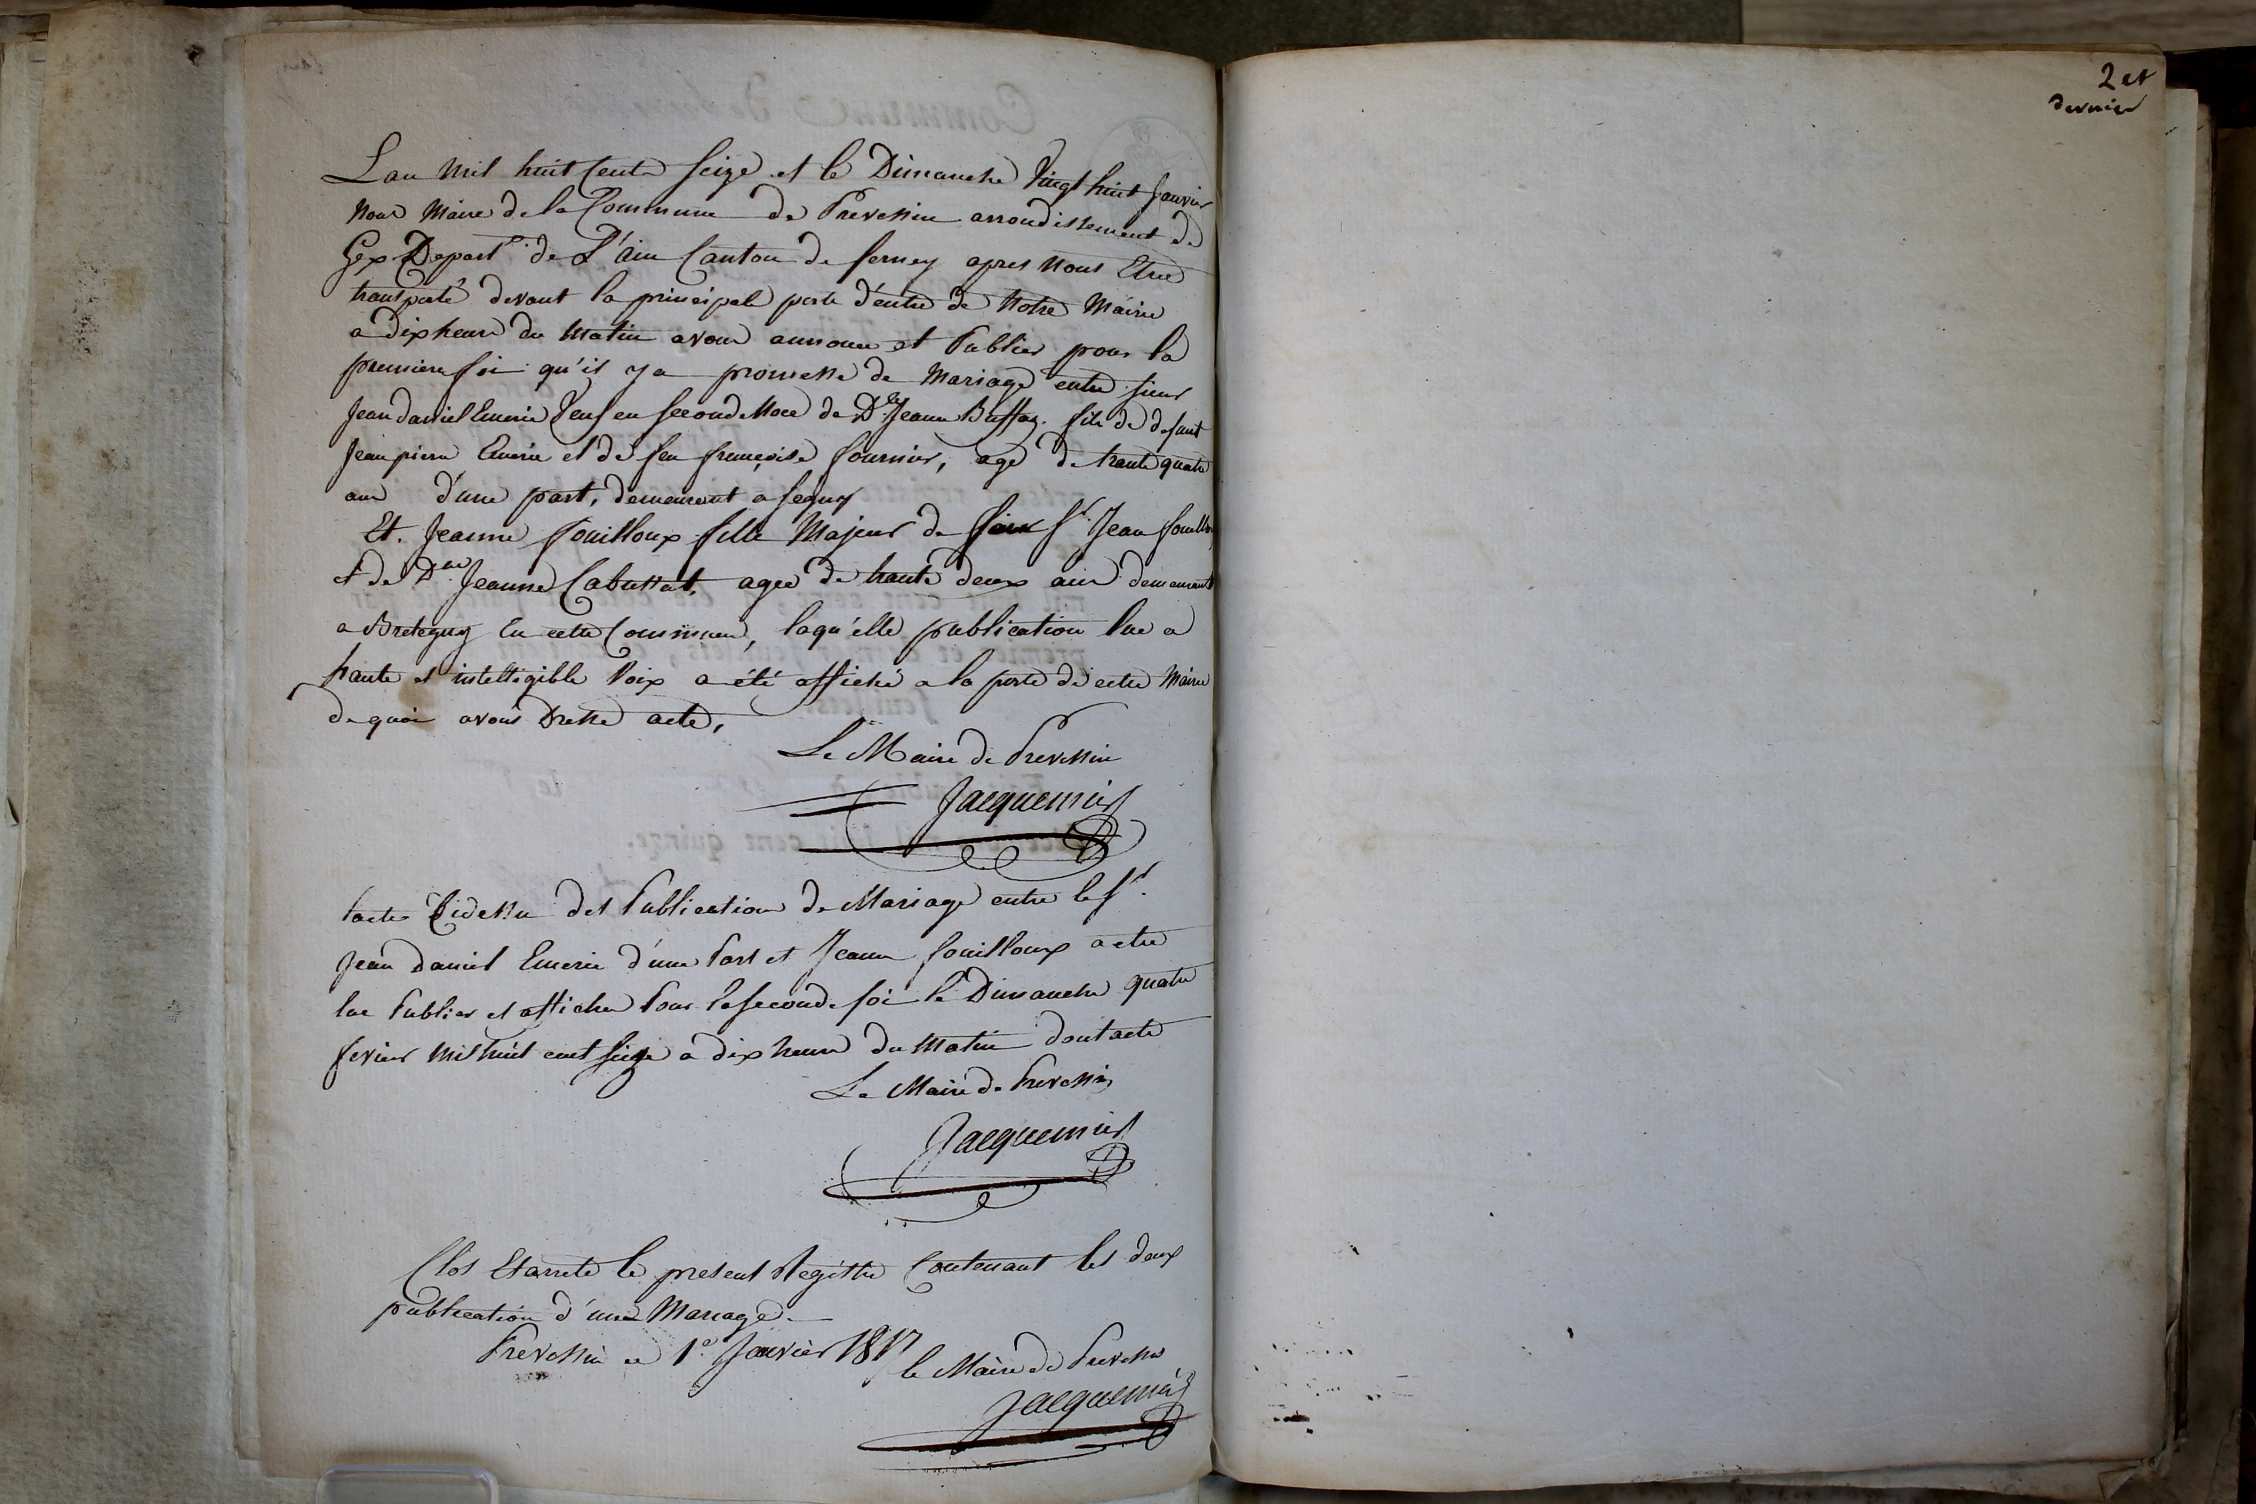 Lan mil huit Cents Seize et le Dimanche Vingt huit Janvier
Nous Maire de la Commune de Prevessin arrondissement de
Gex Depart.t de L'ain Canton de ferney apres nous Etre
transporté devant la principal porte d'entre de Notre Mairie
a dix heure du Matin avons annonce et Publier pour la
premiere foi qu'il y a promesse de Mariage entre sieur
Jean daniel Emerie Veuf en seconde Noce de D.e Jeanne Buffaz fils de defunt
Jean pierre Emerie et de feu françoise fournier, age de trante quatre
ans d'une part, demeurant a segny
Et. Jeanne fouilloux fille Majeur de S.r Jean fouilloux
et de D.me Jeanne Cabussat, agee de trante deux ans demeurante
a Bretegny En cette Commune, laqu'elle publication lue a
haute et intelligible Voix a été affiché a la porte de cette Mairie
de quoi avons Dresse acte,
Le Maire de Prevessin
Jacquemier
lacte Cidessu des Publication de Mariage entre le S.r
Jean daniel Emerie d'une Part et Jeanne fouilloux a etre
lue Publier et afficher Pour la seconde foi le Dimanche quatre
fevrier mil huit cent seize a dix heure du Matin dont acte
Le Maire de Prevessin
Jacquemier
Clos Et arrete le present Registre Contenant les deux
publication d'un Mariage.
Prevessin ce 1.e Janvier 1817
le Maire de Prevessin
Jacquemier
2 et
dernier